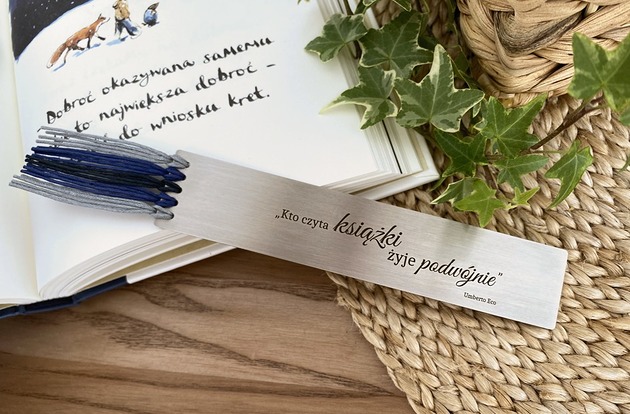 Dobroć okazywana samemu
to największa dobroć –
do wniosku kret.
„Kto czyta książki
żyje podwójnie”
Umberto Eco